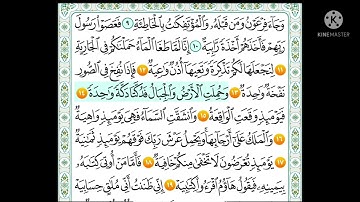 وَجَآءَ فِرْعَوْنُ وَمَن قَبْلَهُۥ وَٱلْمُؤْتَفِكَٰتُ بِٱلْخَاطِئَةِ ٩ فَعَصَوْا۟ رَسُولَ
رَبِّهِمْ فَأَخَذَهُمْ أَخْذَةً رَّابِيَةً ١٠ إِنَّا لَمَّا طَغَا ٱلْمَآءُ حَمَلْنَٰكُمْ فِى ٱلْجَارِيَةِ
١١ لِنَجْعَلَهَا لَكُمْ تَذْكِرَةً وَتَعِيَهَآ أُذُنٌ وَٰعِيَةٌ ١٢ فَإِذَا نُفِخَ فِى ٱلصُّورِ
نَفْخَةٌ وَٰحِدَةٌ ١٣ وَحُمِلَتِ ٱلْأَرْضُ وَٱلْجِبَالُ فَدُكَّتَا دَكَّةً وَٰحِدَةً ١٤
فَيَوْمَئِذٍ وَقَعَتِ ٱلْوَاقِعَةُ ١٥ وَٱنشَقَّتِ ٱلسَّمَآءُ فَهِىَ يَوْمَئِذٍ وَاهِيَةٌ
١٦ وَٱلْمَلَكُ عَلَىٰٓ أَرْجَآئِهَا وَيَحْمِلُ عَرْشَ رَبِّكَ فَوْقَهُمْ يَوْمَئِذٍ ثَمَٰنِيَةٌ
١٧ يَوْمَئِذٍ تُعْرَضُونَ لَا تَخْفَىٰ مِنكُمْ خَافِيَةٌ ١٨ فَأَمَّا مَنْ أُوتِىَ كِتَٰبَهُۥ
بِيَمِينِهِۦ فَيَقُولُ هَآؤُمُ ٱقْرَءُوا۟ كِتَٰبِيَهْ ١٩ إِنِّى ظَنَنتُ أَنِّى مُلَٰقٍ حِسَابِيَهْ
Made with
KINEMASTER